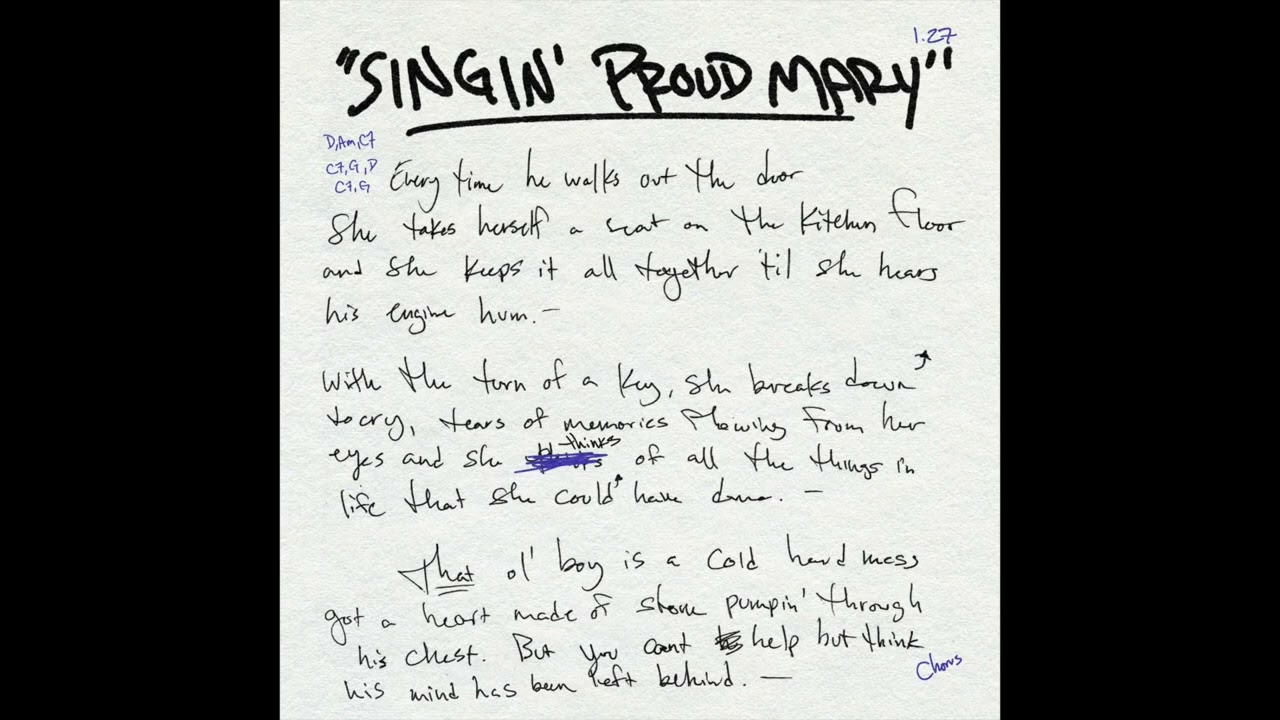 1.27
"SINGIN' PROUD MARY"
D,Am,C7
C7,G,D
C7,G
Every time he walks out the door
She takes herself a seat on the Kitchen floor
and she keeps it all together 'til she hears
his engine hum. –
With the turn of a key, she breaks down
to cry, tears of memories flowing from her
eyes and she thinks of all the things in
life that she could have done. –
That ol' boy is a cold hard mess
got a heart made of stone pumpin' through
his chest. But you can't help but think
his mind has been left behind. –
Chorus